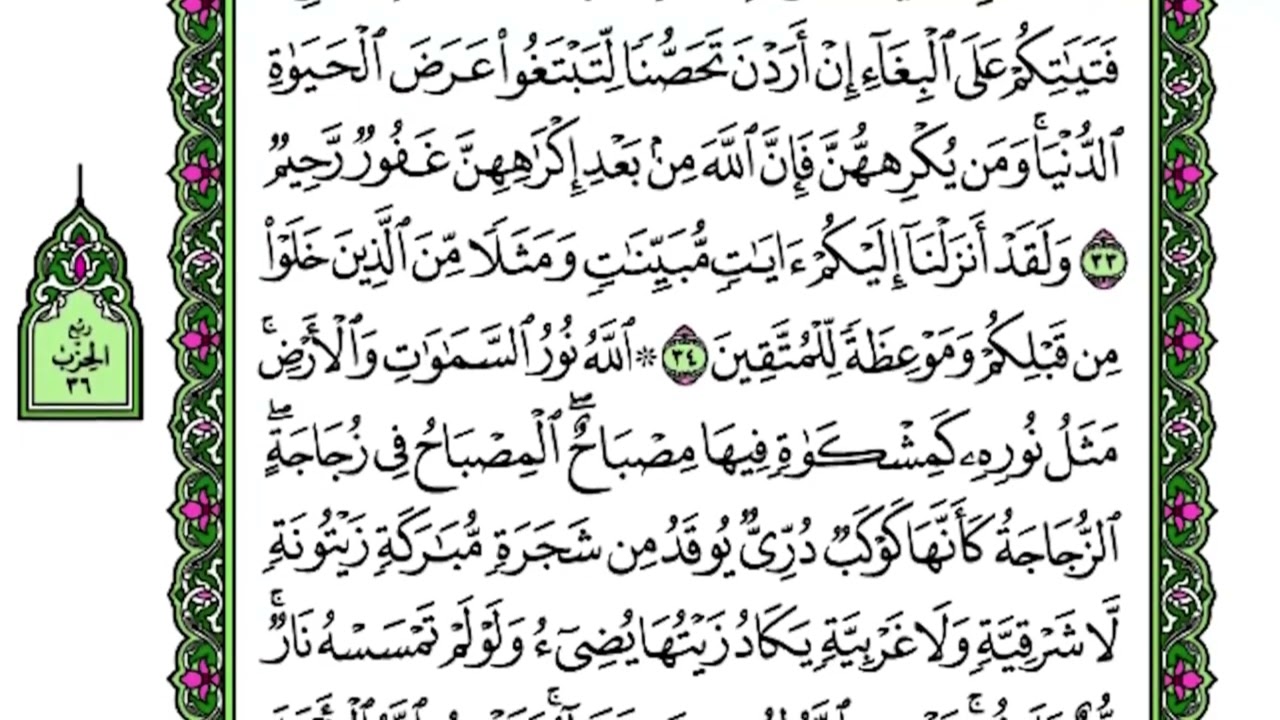 فَتَيَٰتِكُمْ عَلَى ٱلْبِغَآءِ إِنْ أَرَدْنَ تَحَصُّنًا لِّتَبْتَغُوا۟ عَرَضَ ٱلْحَيَوٰةِ
ٱلدُّنْيَا ۚ وَمَن يُكْرِههُّنَّ فَإِنَّ ٱللَّهَ مِنۢ بَعْدِ إِكْرَٰهِهِنَّ غَفُورٌ رَّحِيمٌ
٣٣ وَلَقَدْ أَنزَلْنَآ إِلَيْكُمْ ءَايَٰتٍ مُّبَيِّنَٰتٍ وَمَثَلًا مِّنَ ٱلَّذِينَ خَلَوْا۟
مِن قَبْلِكُمْ وَمَوْعِظَةً لِّلْمُتَّقِينَ ٣٤ ۞ ٱللَّهُ نُورُ ٱلسَّمَٰوَٰتِ وَٱلْأَرْضِ ۚ
مَثَلُ نُورِهِۦ كَمِشْكَوٰةٍ فِيهَا مِصْبَاحٌ ۖ ٱلْمِصْبَاحُ فِى زُجَاجَةٍ ۖ
ٱلزُّجَاجَةُ كَأَنَّهَا كَوْكَبٌ دُرِّىٌّ يُوقَدُ مِن شَجَرَةٍ مُّبَٰرَكَةٍ زَيْتُونَةٍ
لَّا شَرْقِيَّةٍ وَلَا غَرْبِيَّةٍ يَكَادُ زَيْتُهَا يُضِىٓءُ وَلَوْ لَمْ تَمْسَسْهُ نَارٌ ۚ
ربع
الحزب
٣٦